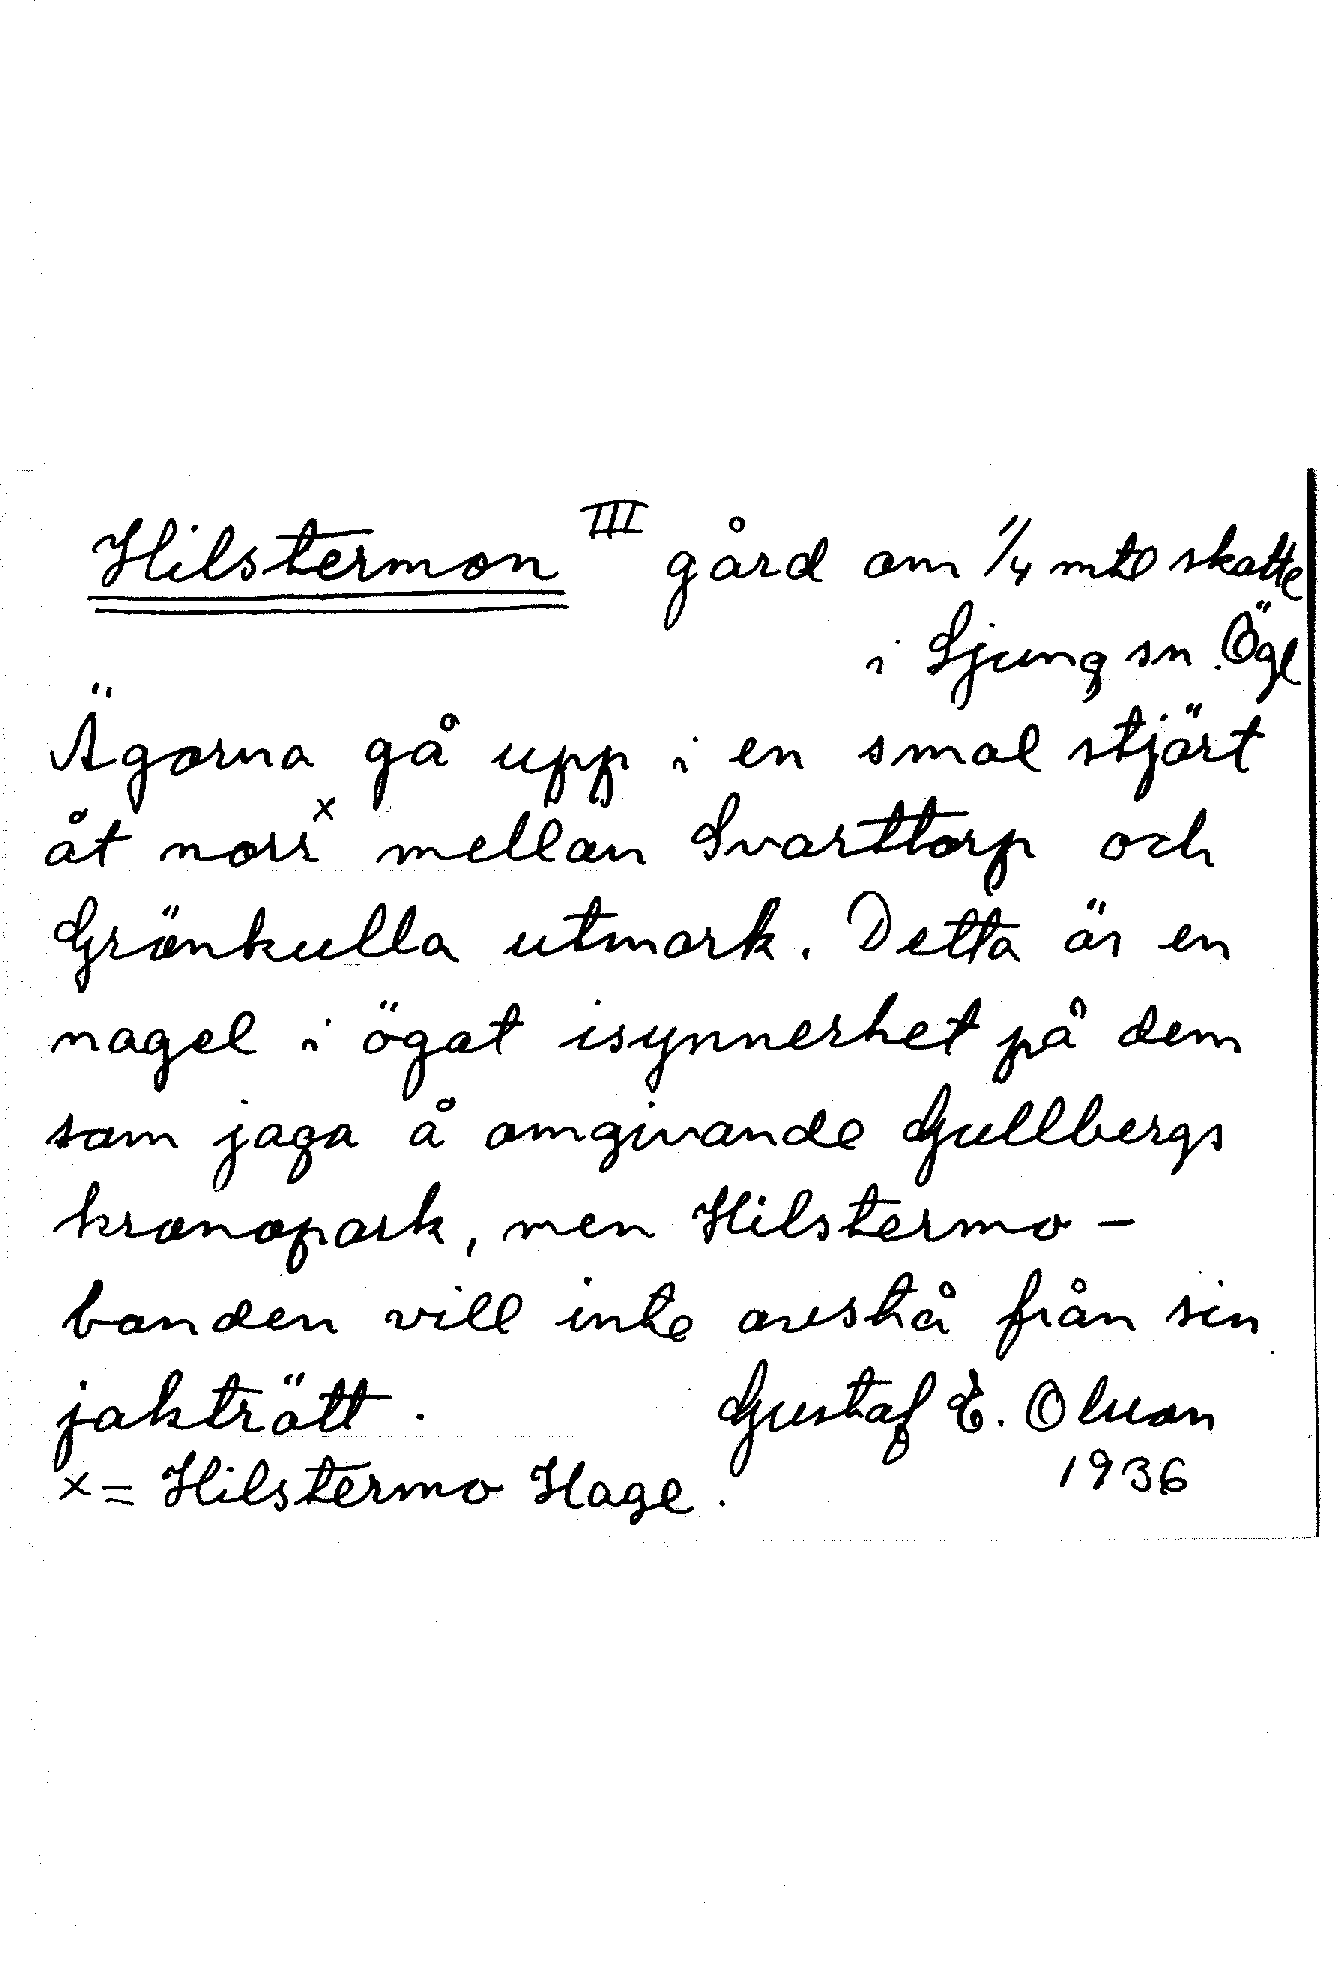 Hilstermon III gård om 1/4 mtl skatte
i Ljung sn. Ögl
Ägorna gå upp i en smal stjärt
åt norr x mellan Svarttorp och
Grönkulla utmark. Detta är en
nagel i ögat isynnerhet på dem
som jaga å omgivande Gullbergs
kronopark, men Hilstermo-
bonden vill inte avstå från sin
jakträtt. Gustaf E. Olsson
x = Hilstermo Hage. 1936